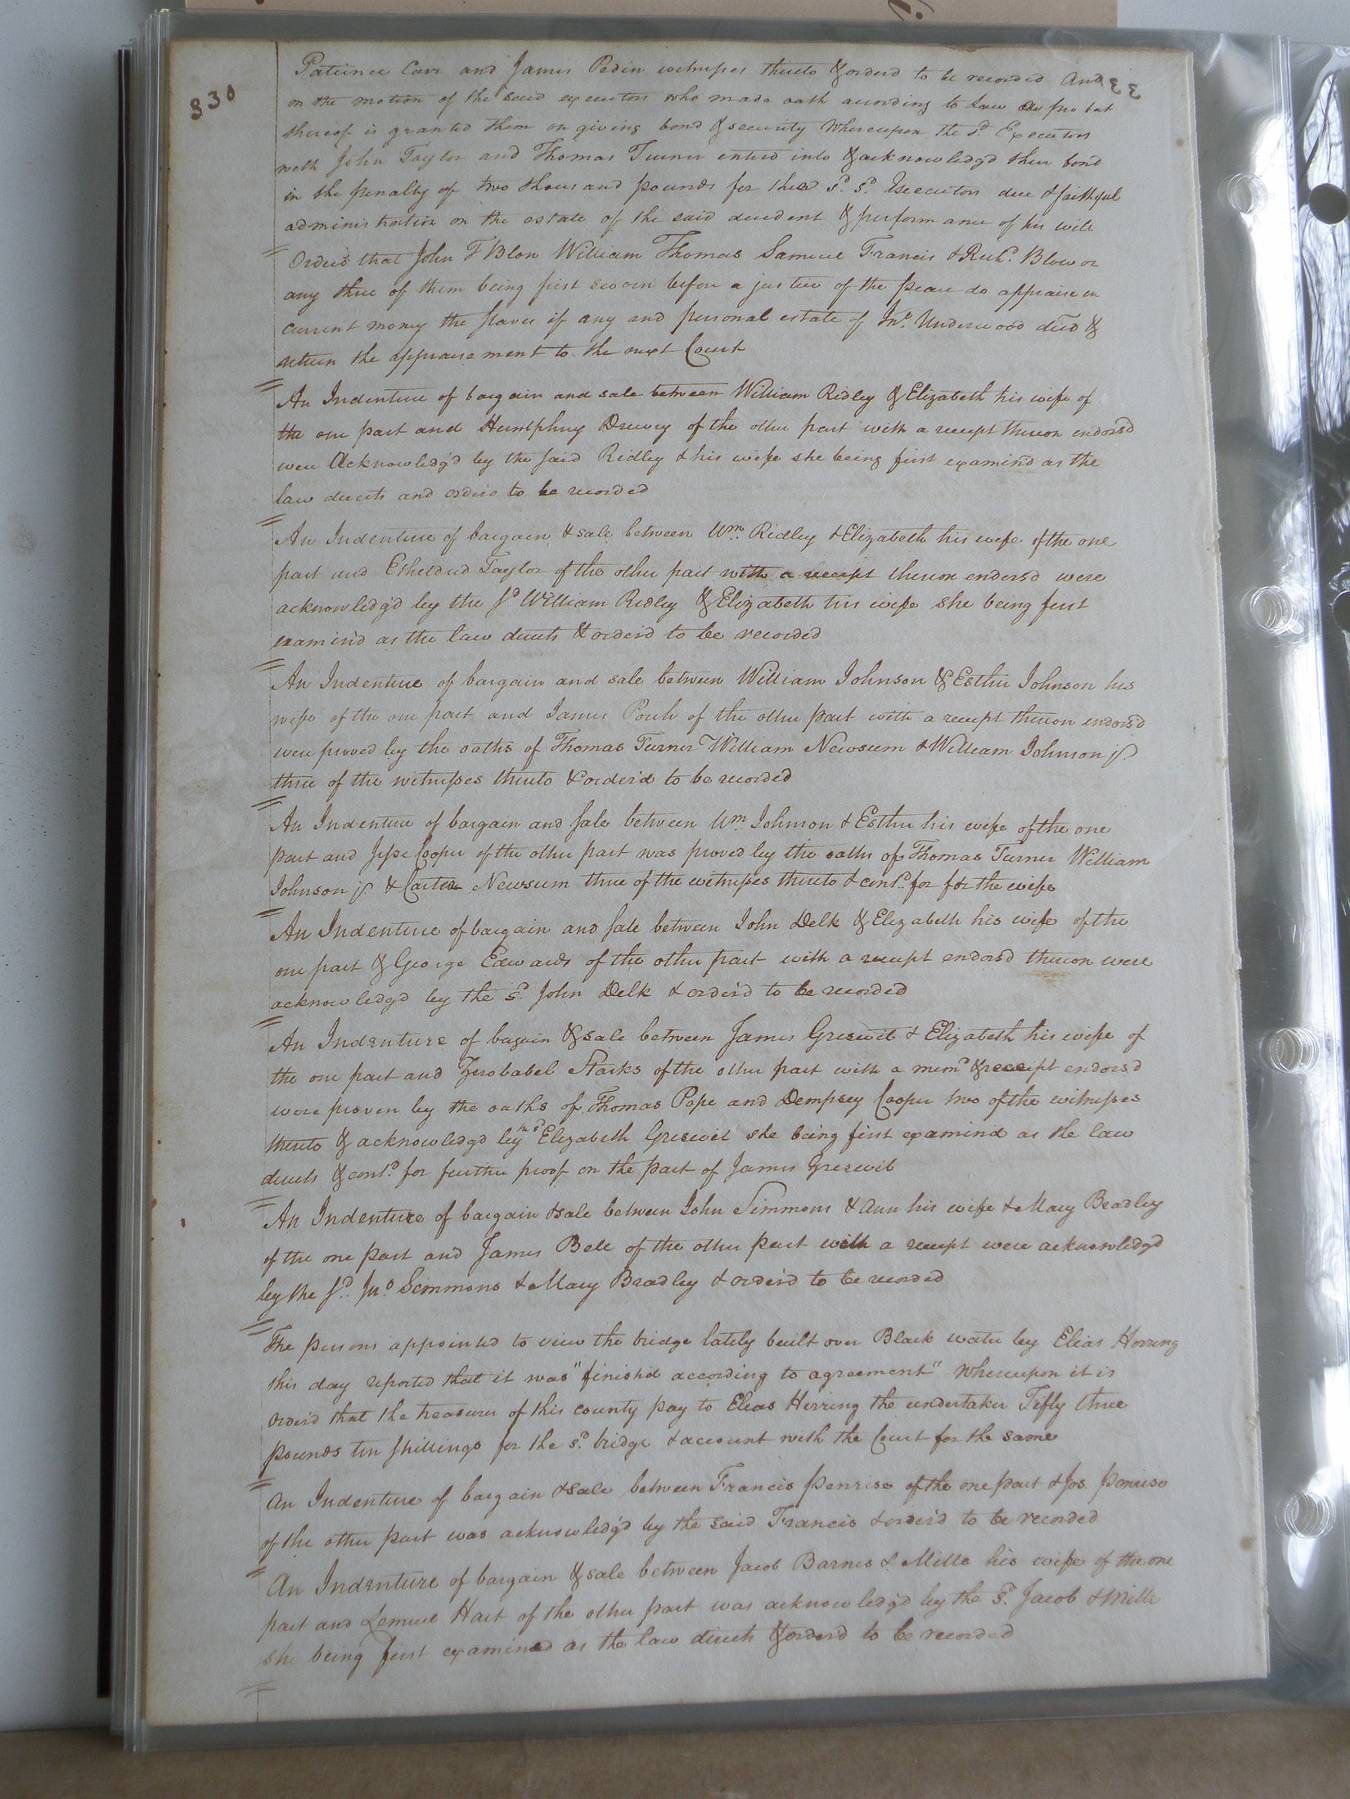 330
Patience Carr and James Pedin witnesses thereto & orderd to be recorded And
on the motion of the said executors who made oath according to Law
thereof is granted them on giving bond & security Whereupon the sd. Executors
with John Taylor and Thomas Turner enterd into & acknowledgd their bond
in the penalty of two thousand pounds for the sd. Executors due & faithful
administration on the estate of the said decedent & performance of his will
Orderd that John T Blow William Thomas Samuel Francis & Richd. Blow or
any three of them being first sworn before a justice of the peace do appraise in
current money the slaves if any and personal estate of Jno. Underwood decd &
return the appraisement to the next Court
An Indenture of bargain and sale between William Ridley & Elizabeth his wife of
the one part and Humphrey Drewry of the other part with a receipt thereon endorsd
were Acknowledg'd by the said Ridley & his wife she being first examind as the
law directs and orderd to be recorded
An Indenture of bargain & sale between Wm. Ridley & Elizabeth his wife of the one
part and Etheldred Taylor of the other part with a receipt thereon endorsd were
acknowledg'd by the sd William Ridley & Elizabeth his wife she being first
examin'd as the law directs & orderd to be recorded
An Indenture of bargain and sale between William Johnson & Esther Johnson his
wife of the one part and James of the other part with a receipt thereon endorsd
were proved by the oaths of Thomas Turner William Newsum & William Johnson jr.
three of the witnesses thereto & orderd to be recorded
An Indenture of bargain and sale between Wm Johnson & Esther his wife of the one
part and Jesse Cooper of the other part was proved by the oaths of Thomas Turner William
Johnson jr. & Carter Newsum three of the witnesses thereto & contd. for for the wife
An Indenture of bargain and sale between John Delk & Elizabeth his wife of the
one part & George Edwards of the other part with a receipt endorsd thereon were
acknowledg'd by the sd. John Delk & orderd to be recorded
An Indenture of bagain & sale between James Greswit & Elizabeth his wife of
the one part and Zerobabel Starks of the other part with a memd & receipt endorsd
were proven by the oaths of Thomas Pope and Dempsey Cooper two of the witnesses
thereto & acknowledgd by the sd Elizabeth Greswit she being first examind as the law
directs & contd. for further proof on the part of James Greswit
An Indenture of bargain & sale between John Simmons & Ann his wife & Mary Bradley
of the one part and James Bell of the other part with a receipt were acknowledgd
by the sd. Jno Simmons & Mary Bradley & orderd to be recorded
The persons appointed to view the bridge lately built over Black water by Elias Herring
this day reported that it was "finishd according to agreement" Whereupon it is
Orderd that the treasurer of this county pay to Elias Herring the undertaker Fifty three
pounds ten shillings for the sd. bridge & account with the Court for the same
An Indenture of bargain & sale between Francis Penrise of the one part & Jos. Penrise
of the other part was acknowledg'd by the said Francis & orderd to be recorded
An Indenture of bargain & sale between Jacob Barnes & Mille his wife of the one
part and Lemuel Hart of the other part was acknowledg'd by the sd. Jacob & Mille
she being first examined as the law directs & orderd to be recorded